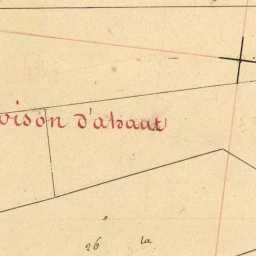 oison d'ahaut
26 la